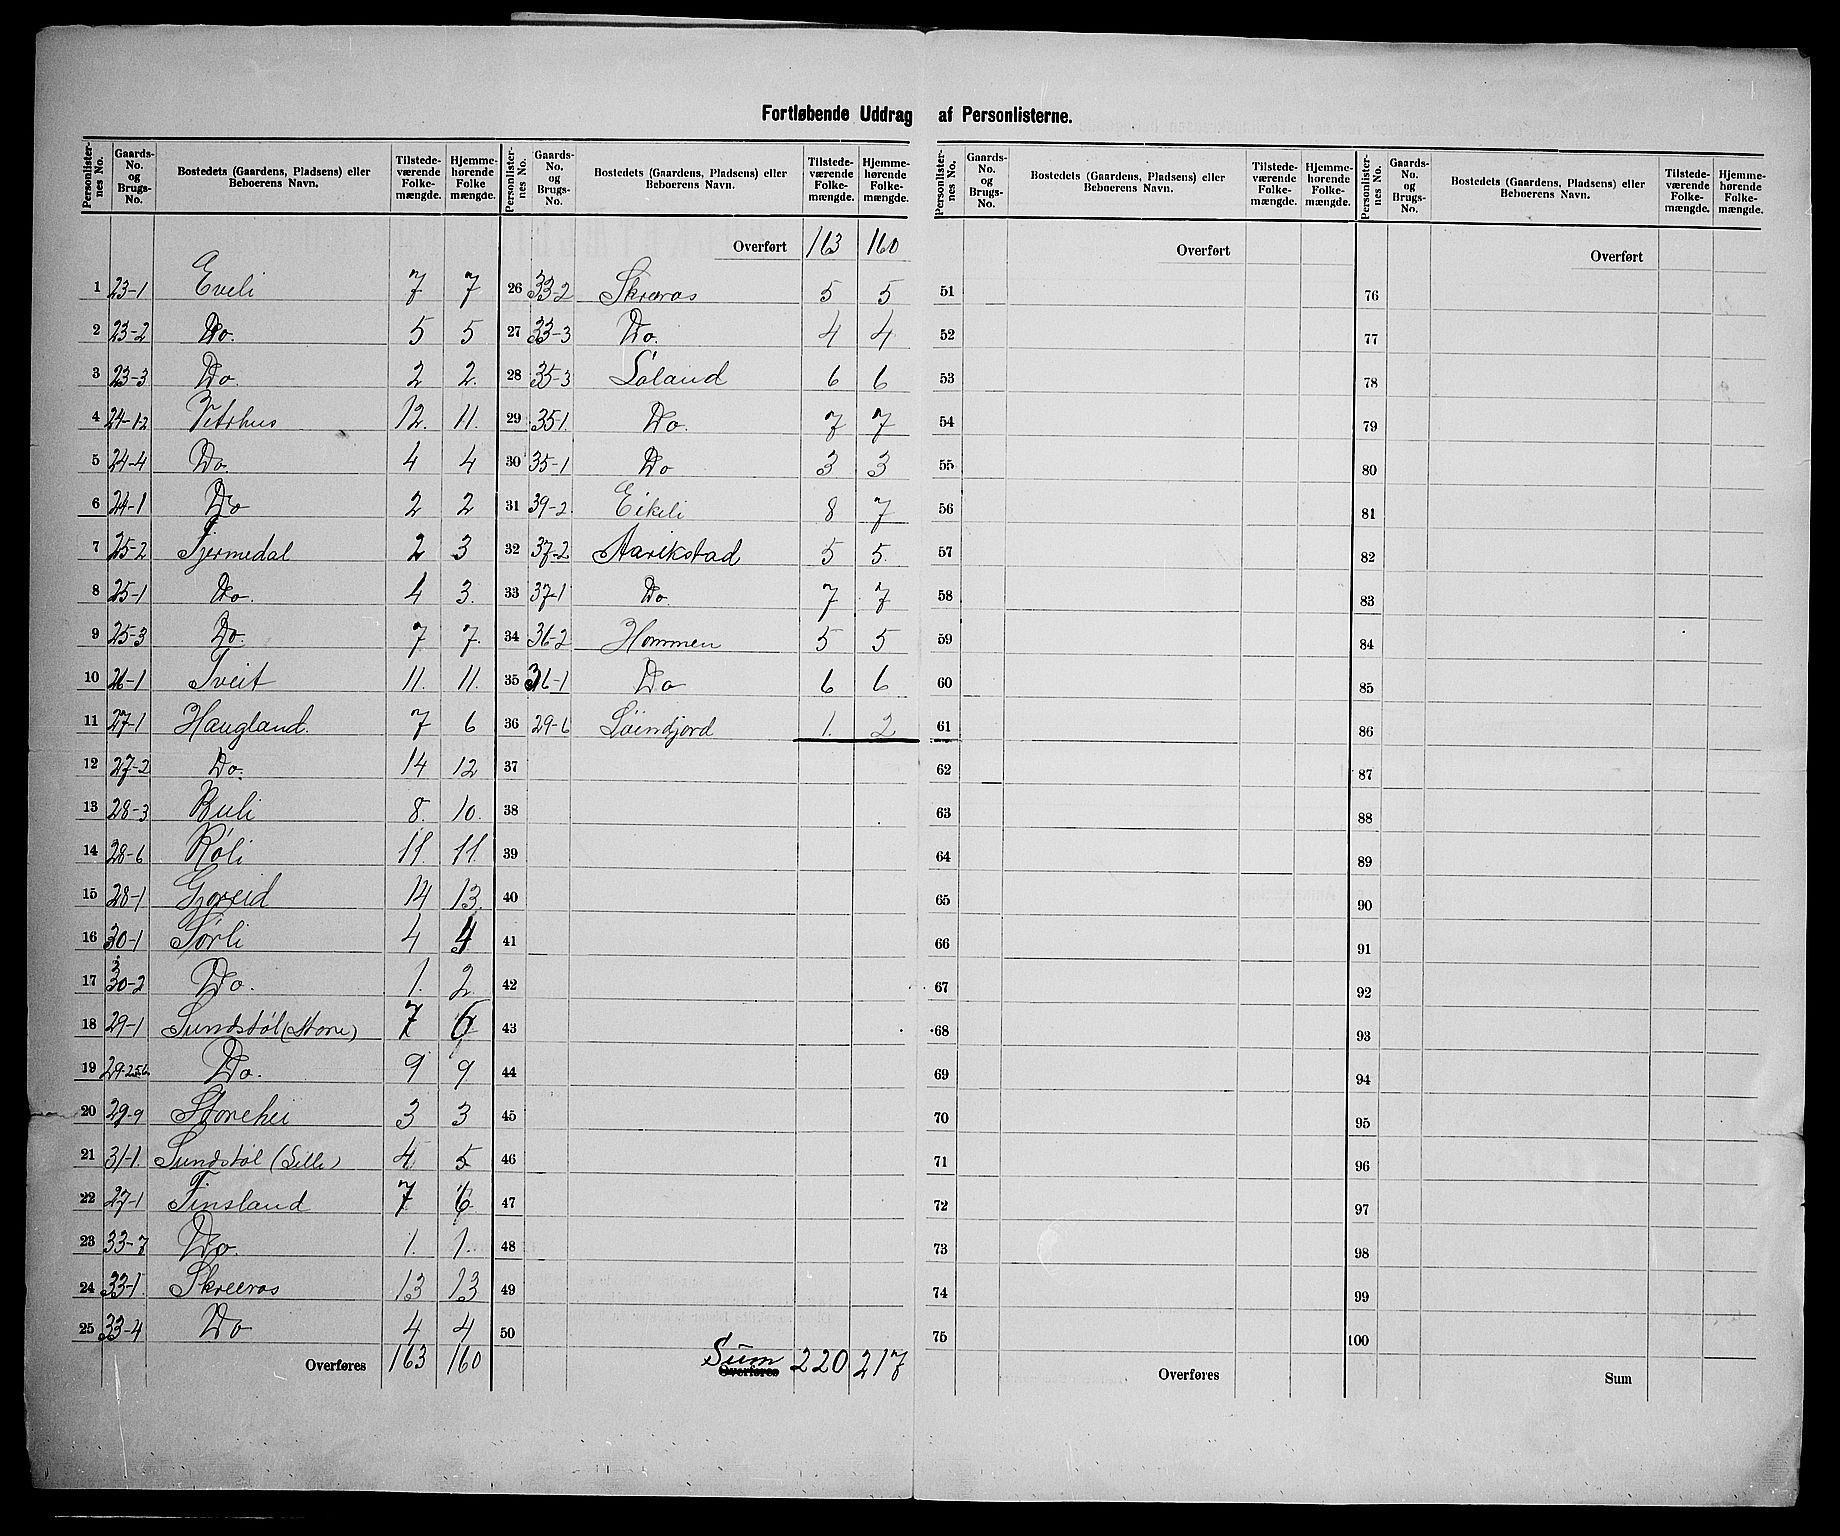 Fortløbende Uddrag af Personlisterne.
Personlister-nes No. | Gaards-No. og Brugs-No. | Bostedets (Gaardens, Pladsens) eller Beboerens Navn. | Tilstede-værende Folke-mængde. | Hjemme-hørende Folke mængde.
1 23-1 Eveli 7 7
2 23-2 Do. 5 5
3 23-3 Do. 2 2.
4 24-12 Vitrhus 12. 11.
5 24-4 Do. 4 4
6 24-1 Do 2 2
7 25-2 Tjermedal 2 3
8 25-1 Do. 4 3.
9 25-3 Do. 7 7.
10 26-1 Tveit 11. 11.
11 27-1 Haugland. 7 6
12 27-2 Do. 14 12
13 28-3 Buli 8. 10.
14 28-6 Røli 11. 11.
15 28-1 14 13.
16 30-1 Sørli 4 4
17 30-2 Do. 1. 2
18 29-1 Sundstøl (Store) 7 6
19 Do. 9 9
20 29-9 Storehei 3 3
21 31-1. Sundstøl (Lille) 4 5
22 27-1 Finsland 7 6
23 33-7 Do. 1. 1.
24 33-1 Skreeros 13 13
25 33-4 Do 4 4
Overføres 163 160
Personlister-nes No. | Gaards-No. og Brugs-No. | Bostedets (Gaardens, Pladsens) eller Beboerens Navn. | Tilstede-værende Folke-mængde. | Hjemme-hørende Folke-mængde.
Overført 163 160
26 33-2 Skreros 5 5
27 33-3 Do. 4 4
28 35-3 Løland 6 6
29 35-1. Do. 7 7
30 35-1 Do 3 3
31 39-2 Eikeli 8 7
32 37-2 Aarikstad 5 5.
33 37-1 Do. 7 7
34 36-2 Hommen 5 5
35 36-1 Do 6 6
36 29-6 1. 2
37
38
39
40
41
42
43
44
45
46
47
48
49
50
Sum Overføres 220 217
Personlister-nes No. | Gaards-No. og Brugs-No. | Bostedets (Gaardens, Pladsens) eller Beboerens Navn. | Tilstede-værende Folke-mængde. | Hjemme-hørende Folke-mængde.
Overført
51
52
53
54
55
56
57
58
59
60
61
62
63
64
65
66
67
68
69
70
71
72
73
74
75
Overføres
Personlister-nes No. | Gaards-No. og Brugs-No. | Bostedets (Gaardens, Pladsens) eller Beboerens Navn. | Tilstede-værende Folke-mængde. | Hjemme-hørende Folke-mængde.
Overført
76
77
78
79
80
81
82
83
84
85
86
87
88
89
90
91
92
93
94
95
96
97
98
99
100
Sum